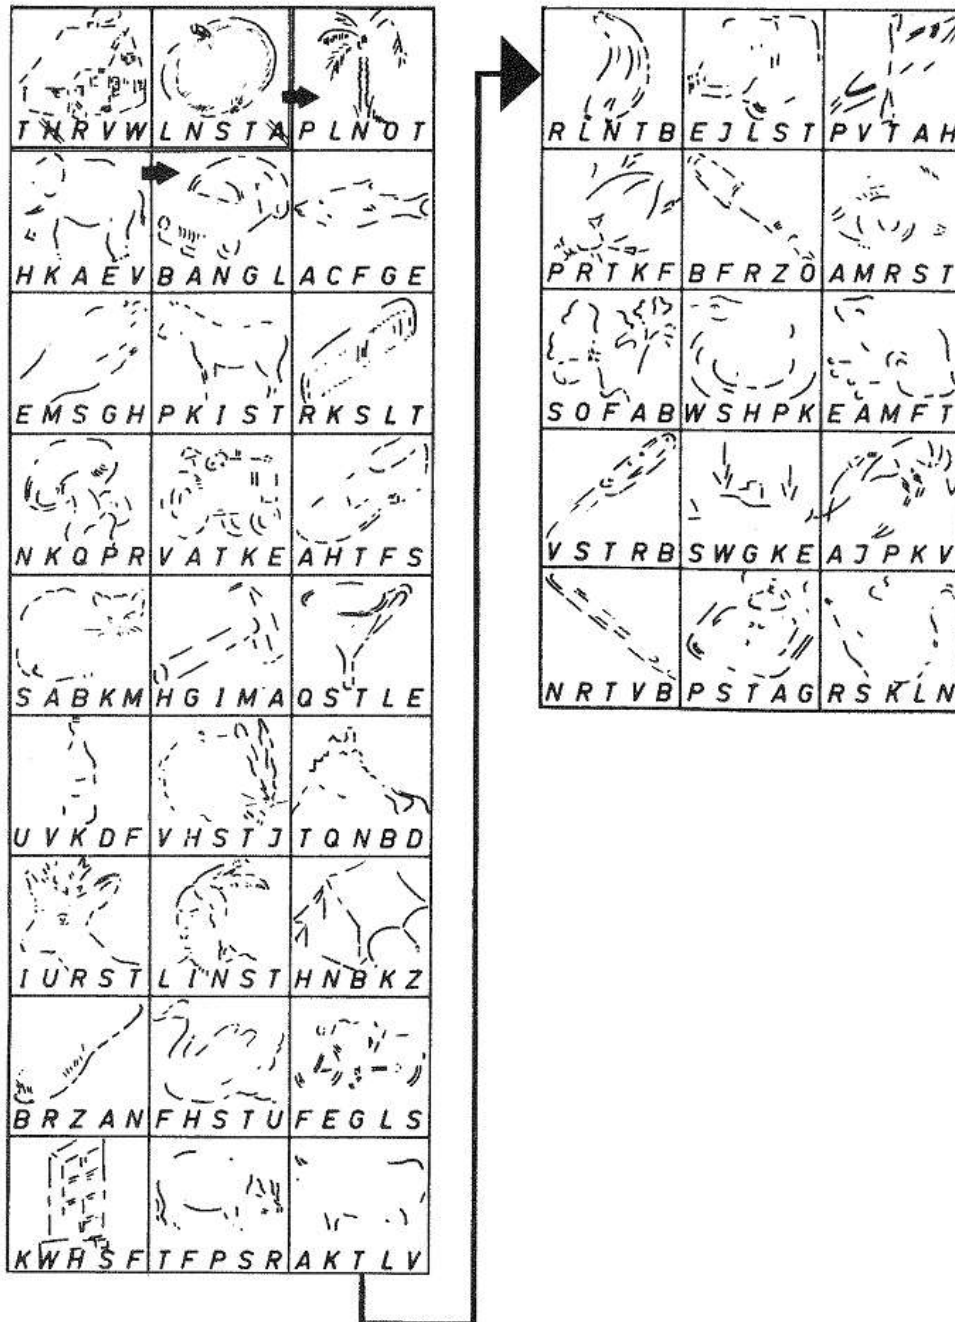 T H R V W L N S T A P L N O T
H K A E V B A N G L A C F G E
E M S G H P K I S T R K S L T
N K Q P R V A T K E A H T F S
S A B K M H G I M A Q S T L E
U V K D F V H S T J T Q N B D
I U R S T L I N S T H N B K Z
B R Z A N F H S T U F E G L S
K W H S F T F P S R A K T L V
R L N T B E J L S T P V T A H
P R T K F B F R Z O A M R S T
S O F A B W S H P K E A M F T
V S T R B S W G K E A J P K V
N R T V B P S T A G R S K L N